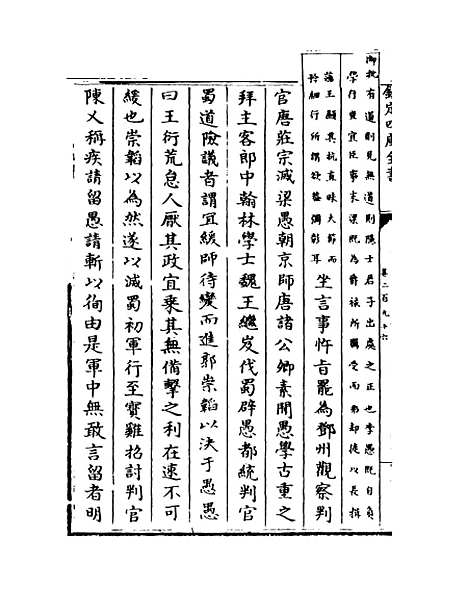 欽定四庫全書
卷二百九十六
御批有道則見無道則隠士君子出處之正也李愚既自負
學行豈宜臣事朱梁既為爵祿所羈受而弗却徒以長揖
藩王顯其抗直昧大節而
矜細行所謂欲葢彌彰耳
坐言事忤旨罷為鄧州觀察判
官唐莊宗滅梁愚朝京師唐諸公卿素聞愚學古重之
拜主客郎中翰林學士魏王繼岌伐蜀辟愚都統判官
蜀道險議者謂宜緩師待變而進郭崇韜以決于愚愚
曰王衍荒怠人厭其政宜乘其無備擊之利在速不可
緩也崇韜以為然遂以滅蜀初軍行至寶雞招討判官
陳乂稱疾請留愚請斬以徇由是軍中無敢言留者明